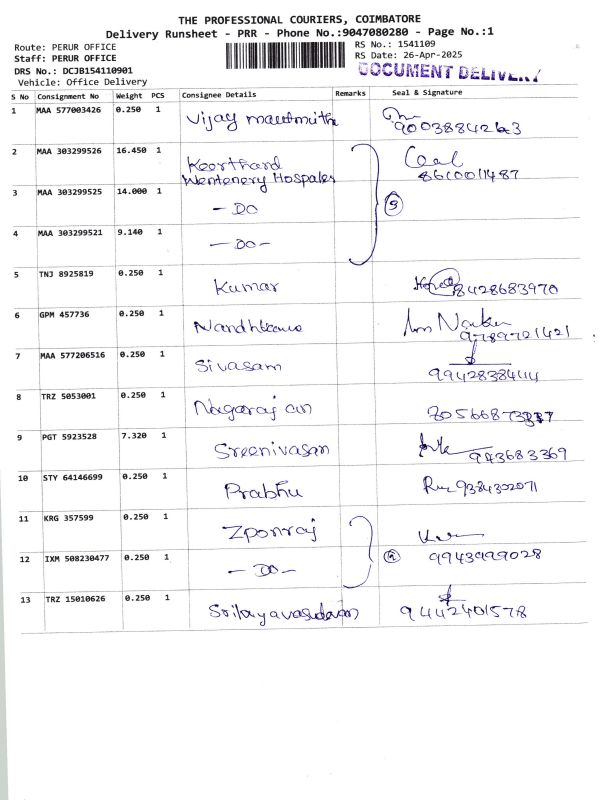 THE PROFESSIONAL COURIERS, COIMBATORE
Delivery Runsheet - PRR - Phone No.:9047080280 - Page No.:1
Route: PERUR OFFICE
RS No.: 1541109
Staff: PERUR OFFICE
RS Date: 26-Apr-2025
DRS No.: DCJB154110901
DOCUMENT DELIVERY
Vehicle: Office Delivery
S No Consignment No Weight PCS Consignee Details Remarks Seal & Signature
1 MAA 577003426 0.250 1 Vijay
2 MAA 303299526 16.450 1 Keerthand
Wentenery Hospales 8610011487
3 MAA 303299525 14.000 1 - DO
4 MAA 303299521 9.140 1 - DO -
5 TNJ 8925819 0.250 1 Kumar 8428683970
6 GPM 457736 0.250 1 9789721421
7 MAA 577206516 0.250 1 Sivasam
8 TRZ 5053001 0.250 1 Nagaraj
9 PGT 5923528 7.320 1 Sreenivasan 943683369
10 STY 64146699 0.250 1 Prabhu 9384302071
11 KRG 357599 0.250 1 Zponraj
12 IXM 508230477 0.250 1 - DO - 9943999028
13 TRZ 15010626 0.250 1 9442401578